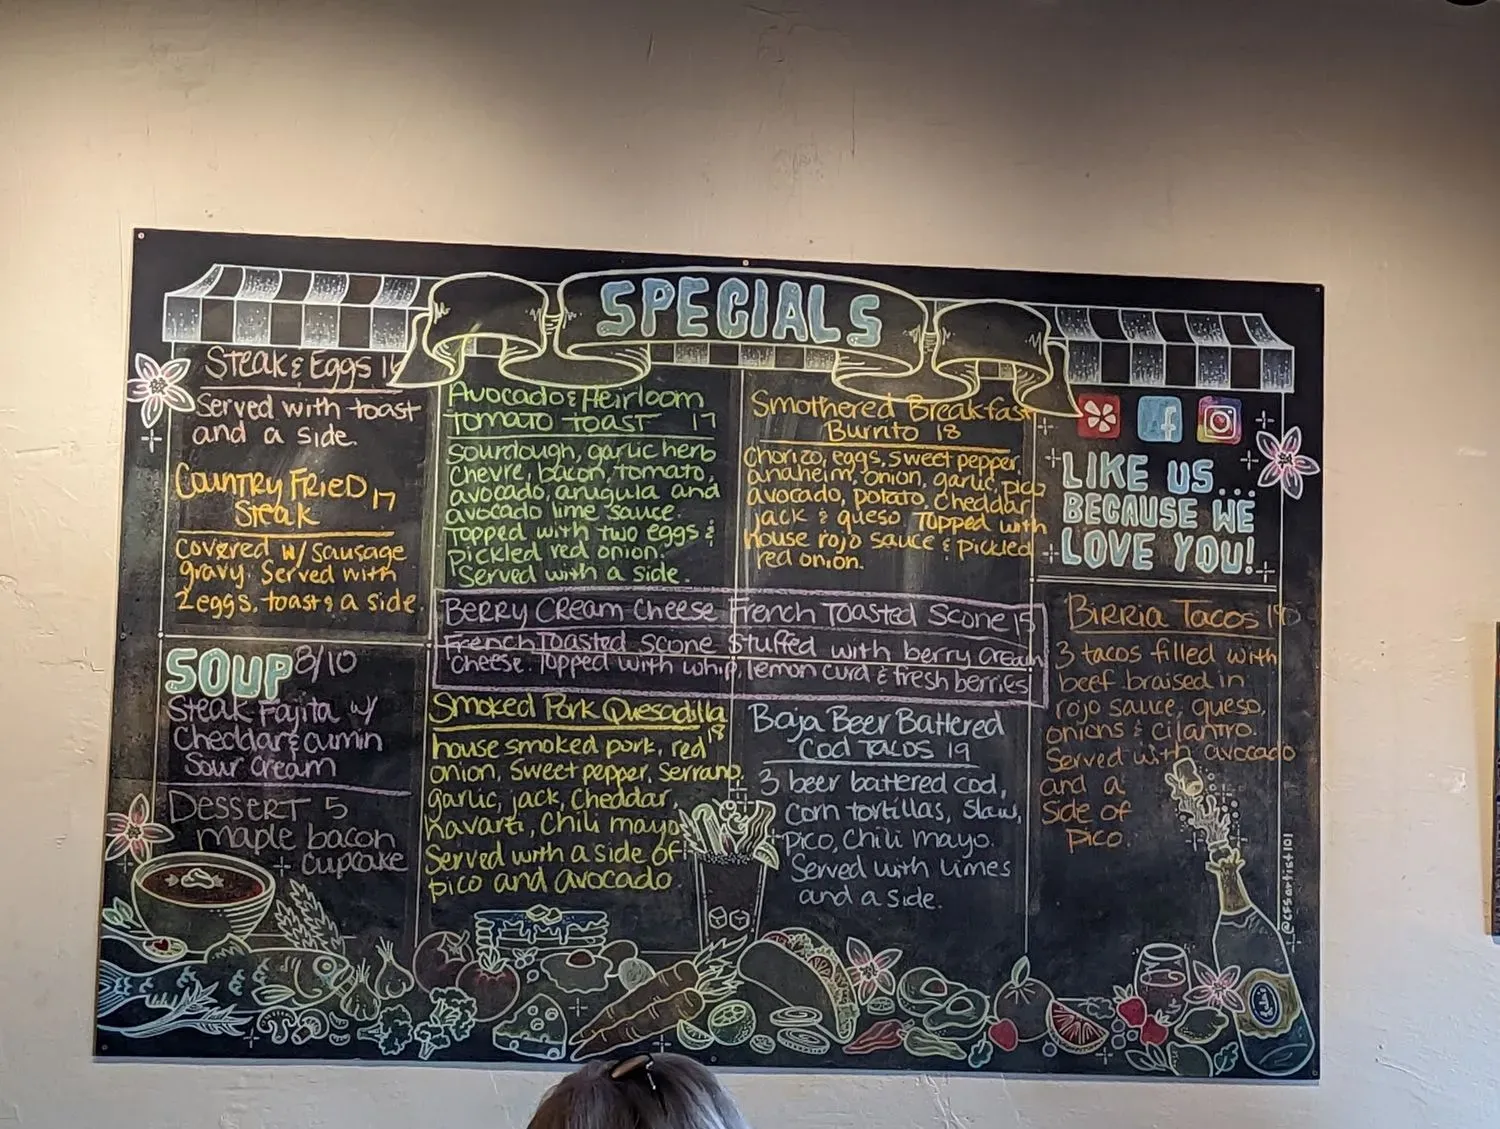 SPECIALS
Steak & Eggs
Served with toast
and a side.
Country Fried 17
Steak
covered w/ sausage
gravy. Served with
2 eggs, toast & a side.
SOUP 8/10
Steak Fajita w/
Cheddar & cumin
Sour cream
Dessert 5
maple bacon
cupcake
Avocado & Heirloom
Tomato Toast 17
sourdough, garlic herb
chevre, bacon, tomato,
avocado, arugula and
avocado lime sauce.
Topped with two eggs &
pickled red onion.
Served with a side.
Smothered Breakfast
Burrito 18
Chorizo, eggs, sweet pepper,
anaheim, onion, garlic, pico
avocado, potato, cheddar,
jack & queso Topped with
house rojo sauce & pickled
red onion.
Berry Cream Cheese French Toasted Scone 15
French Toasted Scone Stuffed with berry cream
cheese. Topped with whip, lemon curd & fresh berries
Smoked Pork Quesadilla
18
house smoked pork, red
onion, sweet pepper, serrano,
garlic, jack, cheddar,
havarti, Chili mayo
Served with a side of
pico and avocado
Baja Beer Battered
Cod Tacos 19
3 beer battered cod,
corn tortillas, slaw,
pico, Chili mayo.
Served with limes
and a side.
LIKE US...
BECAUSE WE
LOVE YOU!
Birria Tacos
3 tacos filled with
beef braised in
rojo sauce, queso,
onions & cilantro.
Served with avocado
and a
side of
pico.
@cfsartist101